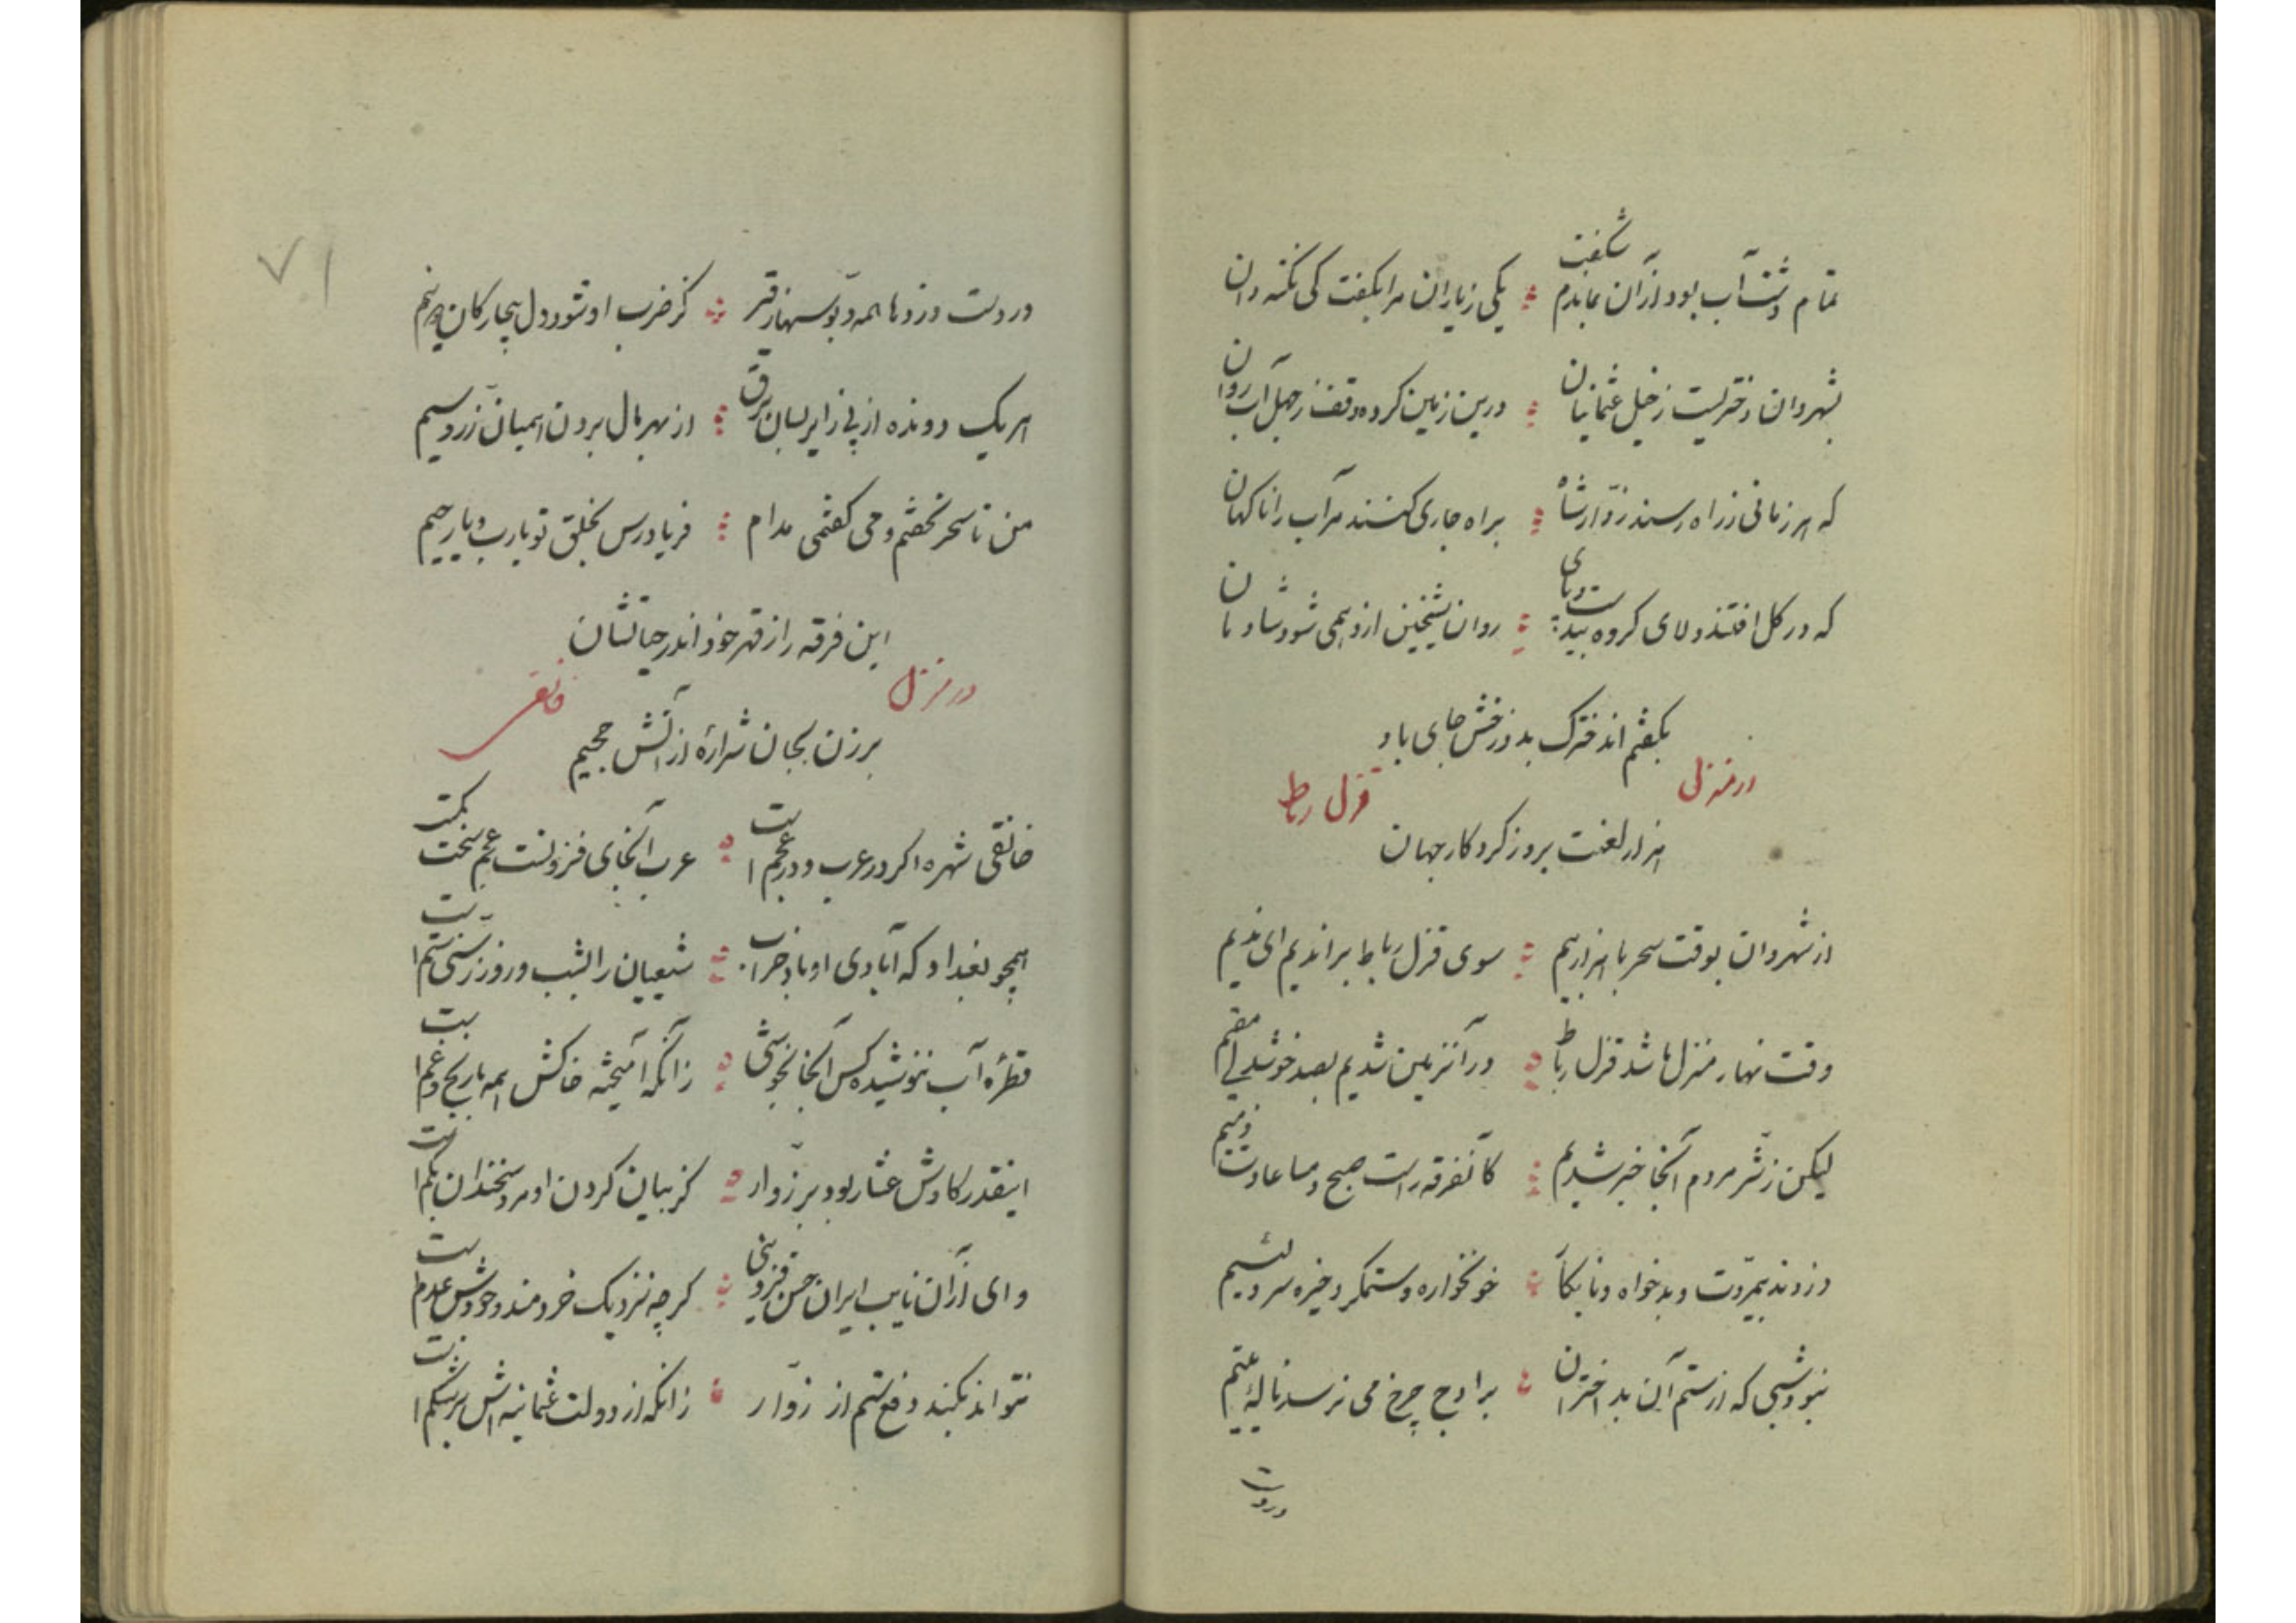 تمام دشت آب بود ازآن بماندم شگفت ؛ یکی زیاران مرا بگفت کی نکته دان
بشهروان دختریست زخیل عثمانیان ؛ درین زمین کرده وقف زجهل آب روان
که هر زمانی زراه رسند زوّار شاه ؛ براه جاری کنند مر آب را ناکهان
که در کل افتند ولای کروه بیدست وپای ؛ روان شیخین ازو همی شود شادمان
بکفتم اندخترک بدوزخش جای باد
در منزل قزل رباط
هزار لعنت بروز کردکار جهان
از شهروان بوقت سحر با هزار بیم ؛ سوی قزل رباط براندیم ای ندیم
وقت نهار منزل ما شد قزل رباط ؛ در آنزمین شدیم بصد خوشدلی مقیم
لیکن زشّر مردم آنجا خبر شدیم ؛ کآنفرقه راست صبح ومسا عادت ذمیم
دزدند بیمرّوت وبدخواه ونابکآ ؛ خونخواره وستمکر وخیره سر ولئیم
نبود شبی که از ستم آن بد اختران ؛ بر اوج چرخ می نرسد نالهٔ یتیم
در دست
در دست دزدها همه دبّوسهاز قیر ؛ کز ضرب او شود دل بیچارکان دونیم
هریک دونده از پی زایر بسان برق ؛ از بهر مال بردن همیان زرّ وسیم
من تا سحر نخفتم ومی کفتمی مدام ؛ فریادرس بخلق تو یارب ویا رحیم
این فرقه را زقهر خود اندر حیاتشان
در منزل خانقی
برزن بجان شرارهٔ از آتش جحیم
خانقی شهره اکر در عرب ودر عجم است ؛ عرب آنجای فزونست عجم سخت کمست
همچو بغداد که آبادی او باد خراب ؛ شیعیان را بشب وروز زسنّی ستم است
قطرهٔ آب ننوشیده کس آنجا بخوشی ؛ زانکه آمیخته خاکش همه با رنج وغم است
اینقدر کاوش عشار بود بر زوّار ؛ کز بیان کردن او مرد سخندان بکم است
وای ازآن نایب ایران حسن قزوینی ؛ کرچه نزدیک خردمند وجودش عدم است
نتواند بکند دفع ستم از زوّار ؛ زانکه از دولت عثمانیه اش پر شکم است
۷۱